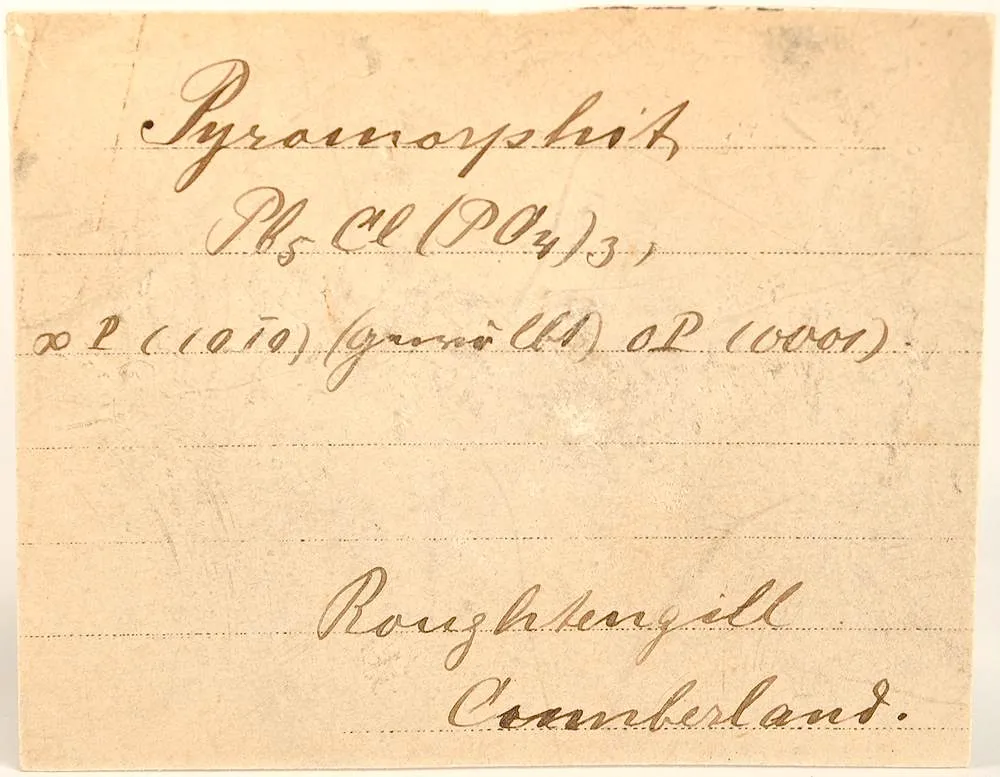 Pyromorphit
Pb5 Cl (PO4)3,
∞P (101̄0) (gewölbt) 0P (0001).
Roughtengill
Cumberland.